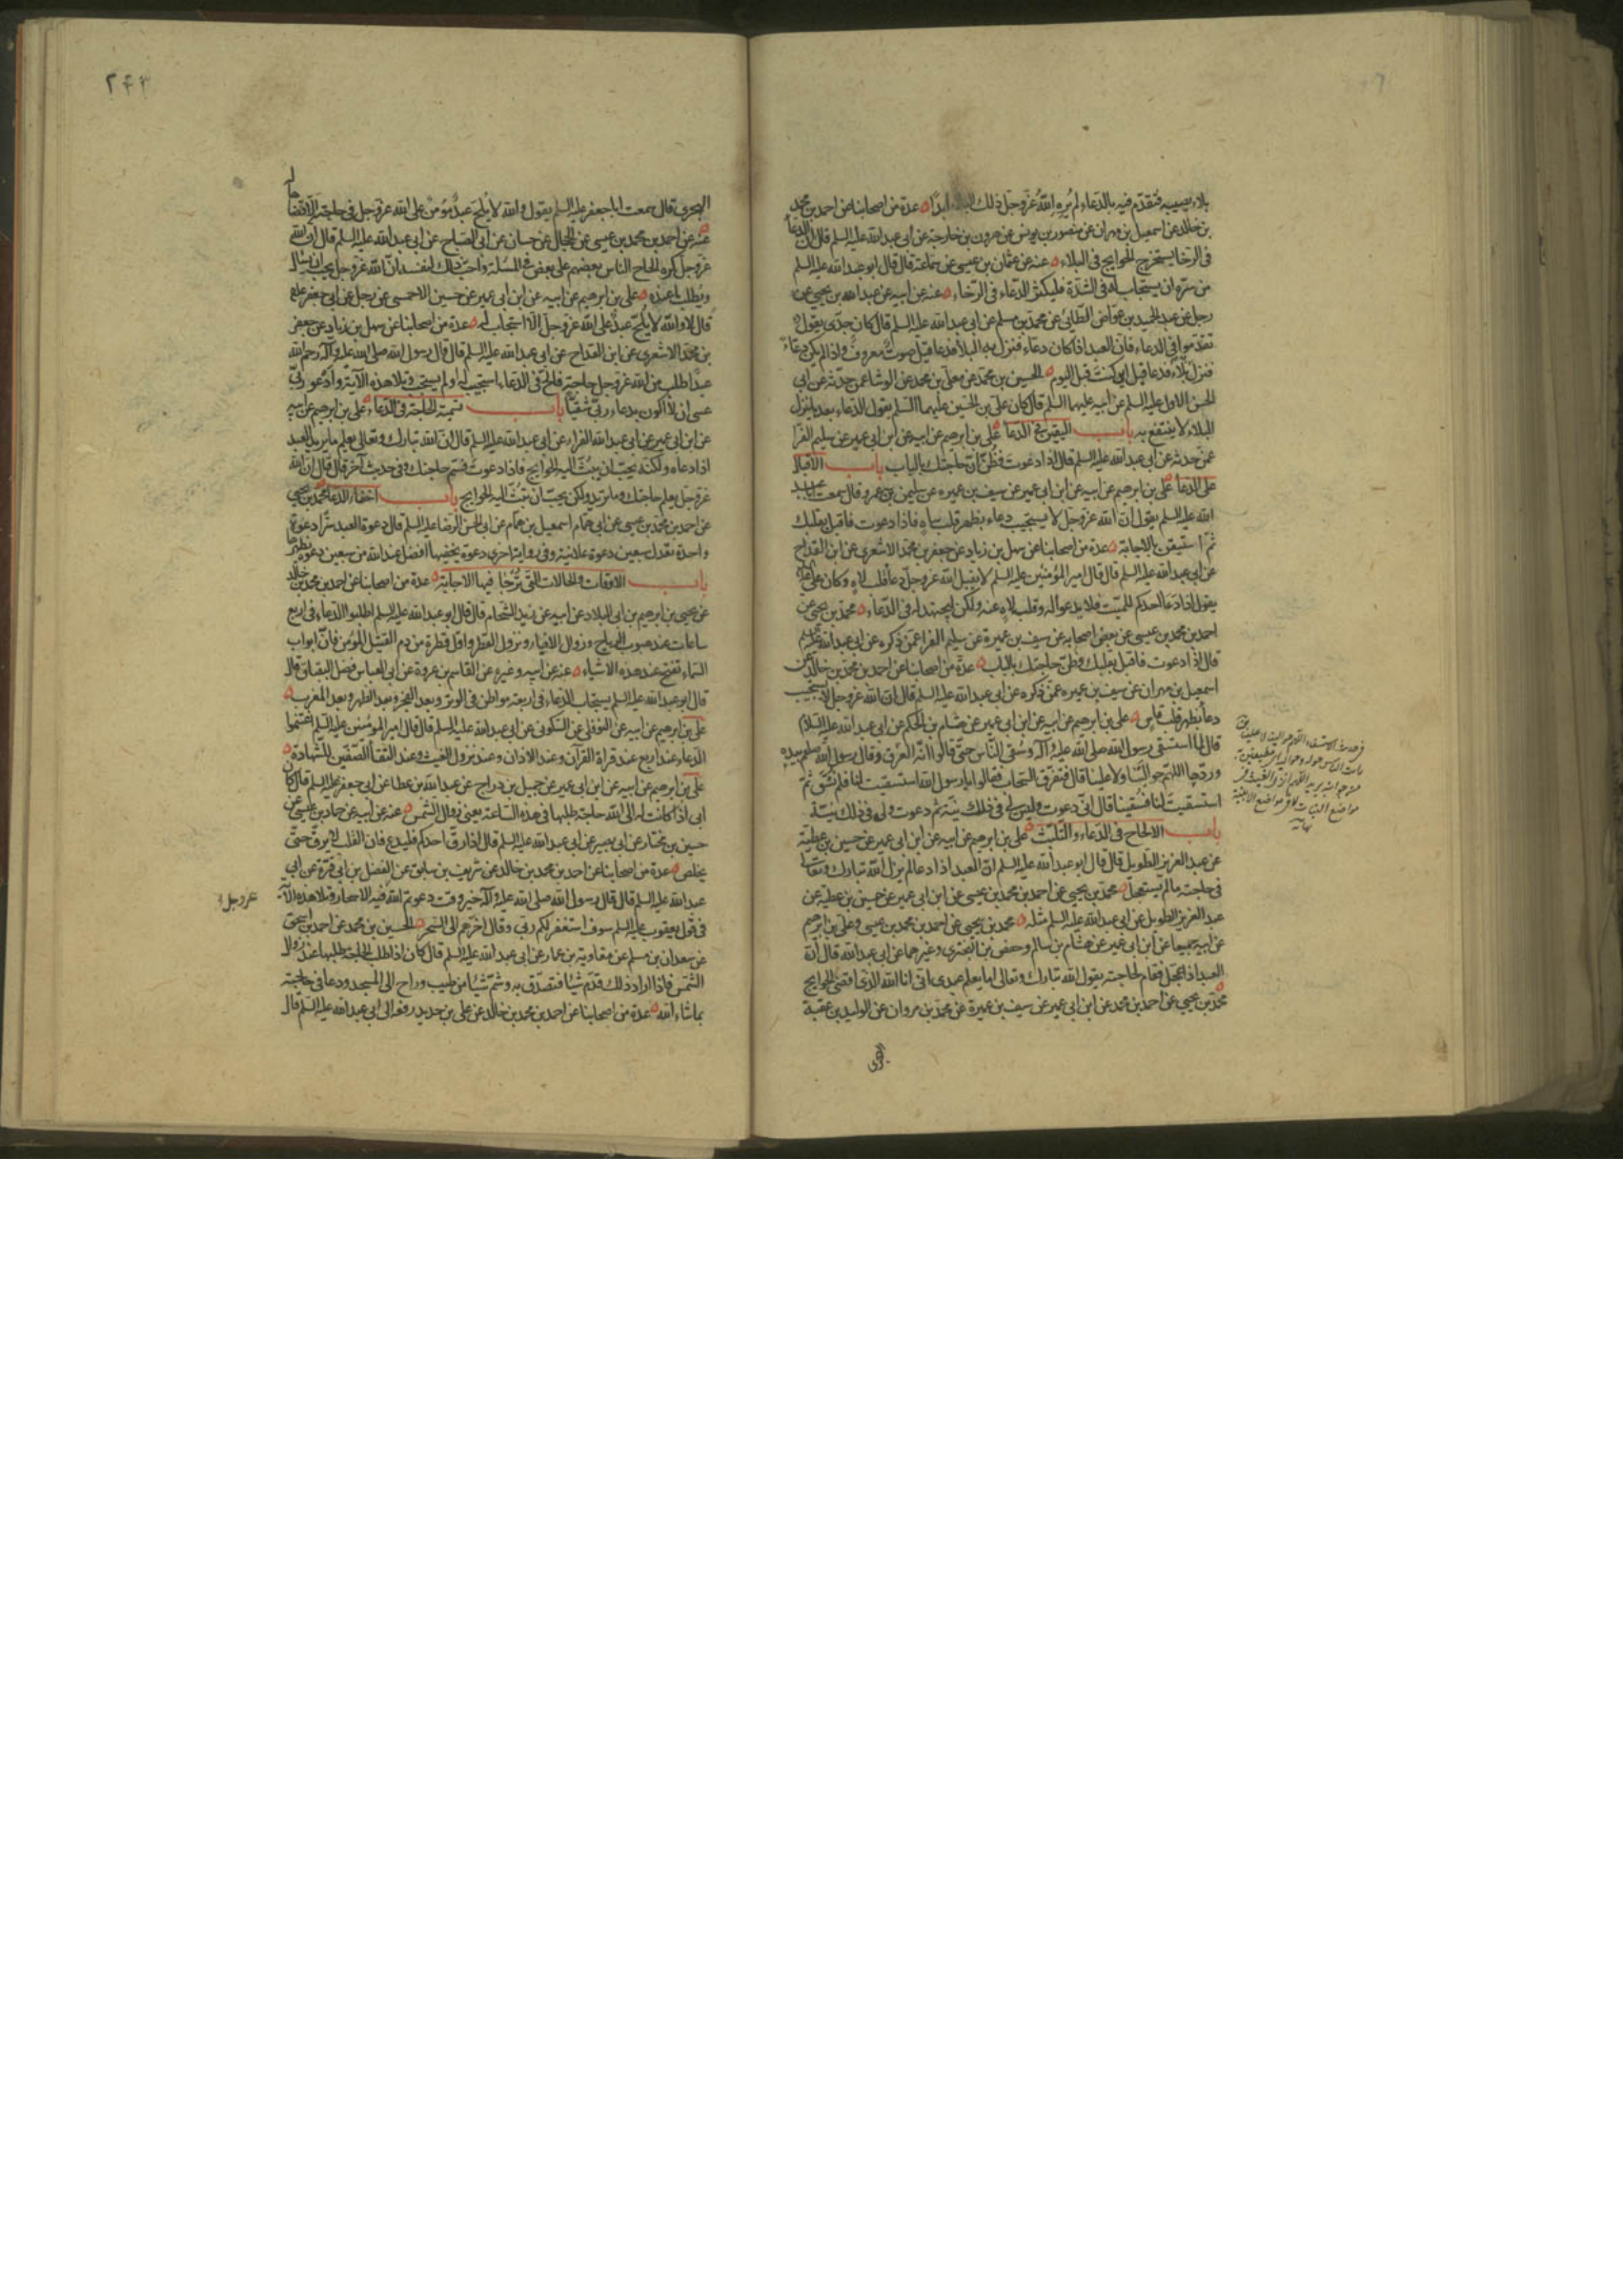 بلاء يصيبه فتقدم فيه بالدعاء لم يره الله عز وجل ذلك البلاء ابدا عدة من اصحابنا عن احمد بن محمد
بن خالد عن اسمعيل بن مهران عن منصور بن يونس عن هرون بن خارجة عن ابى عبد الله عليه السلم قال ان الدعا
فى الرخا يستخرج الحوايج فى البلاء عنه عن عثمان بن عيسى عن سماعة قال قال ابو عبد الله عليه السلم
من سره ان يستجاب له فى الشدة فليكثر الدعاء فى الرخاء عنه عن ابيه عن عبد الله بن يحيى عن
رجل عن عبد الحميد بن غواض الطائى عن محمد بن مسلم عن ابى عبد الله عليه السلم قال كان جدى يقول
تقدموا فى الدعاء فان العبد اذا كان دعاء فنزل به البلاء فدعا قيل صوت معروف واذا لم يكن دعاء
فنزل به بلاء فدعا قيل اين كنت قبل اليوم الحسين بن محمد عن معلى بن محمد عن الوشا عمن حدثه عن ابى
الحسن الاول عليه السلم عن ابيه عليهما السلم قال كان على بن الحسين عليهما السلم يقول الدعاء بعد ما ينزل
البلاء لا ينتفع به باب اليقين فى الدعا على بن ابرهيم عن ابيه عن ابن ابى عمير عن سليم الفرا
عمن حدثه عن ابى عبد الله عليه السلم قال اذا دعوت فظن ان حاجتك بالباب باب الاقبال
على الدعا على بن ابرهيم عن ابيه عن ابن ابى عمير عن سيف بن عميره عن سليمن بن عمرو قال سمعت ابا عبد
الله عليه السلم يقول ان الله عز وجل لا يستجيب دعاء بظهر قلب ساه فاذا دعوت فاقبل بقلبك
ثم استيقن بالاجابة عدة من اصحابنا عن سهل بن زياد عن جعفر بن محمد الاشعرى عن ابن القداح
عن ابى عبد الله عليه السلم قال قال امير المؤمنين عليه السلم لا يقبل الله عز وجل دعا قلب لاه وكان على
يقول اذا دعا احدكم للميت فلا يدعو له وقلبه لاه عنه ولكن ليجتهد له فى الدعاء محمد بن يحيى عن
احمد بن محمد بن عيسى عن بعض اصحابه عن سيف بن عميرة عن سليم الفرا عمن ذكره عن ابى عبد الله عليه السلم
قال اذا دعوت فاقبل بقلبك وظن حاجتك بالباب عدة من اصحابنا عن احمد بن محمد بن خالد عن
اسمعيل بن مهران عن سيف بن عميره عمن ذكره عن ابى عبد الله عليه السلم قال ان الله عز وجل لا يستجيب
دعا بظهر قلب قاس على بن ابرهيم عن ابيه عن ابن ابى عمير عن هشام بن الحكم عن ابى عبد الله عليه السلام
قال لما استسقى رسول الله صلى الله عليه وآله وسقى الناس حتى قالوا انه الغرق وقال رسول الله صلعم بيده
وردها اللهم حوالينا ولا علينا قال فتفرق السحاب فقالوا يا رسول الله استسقيت لنا فلم نسق ثم
استسقيت لنا فسقينا قال انى دعوت وليس لى فى ذلك نية ثم دعوت ولى فى ذلك نية
باب الالحاح فى الدعاء والتلبث على بن ابرهيم عن ابيه عن ابن ابى عمير عن حسين بن عطية
عن عبد العزيز الطويل قال قال ابو عبد الله عليه السلم ان العبد اذا دعا لم يزل الله تبارك وتعالى
فى حاجته ما لم يستعجل محمد بن يحيى عن احمد بن محمد بن عيسى عن ابن ابى عمير عن حسين بن عطية عن
عبد العزيز الطويل عن ابى عبد الله عليه السلم مثله محمد بن يحيى عن احمد بن محمد بن عيسى وعلى بن ابرهيم
عن ابيه جميعا عن ابن ابى عمير عن هشام بن سالم وحفص بن البخترى وغيرهما عن ابى عبد الله قال ان
العبد اذا عجل فقام لحاجته يقول الله تبارك وتعالى اما يعلم عبدى انى انا الله الذى اقضى الحوايج
محمد بن يحيى عن احمد بن محمد عن ابن ابى عمير عن سيف بن عميرة عن محمد بن مروان عن الوليد بن عقبة
الهجرى
٢٤٣
الهجرى قال سمعت ابا جعفر عليه السلم يقول والله لا يلح عبد مؤمن على الله عز وجل فى حاجته الا قضاها له
عنه عن احمد بن محمد بن عيسى عن الحجال عن حسان عن ابى الصباح عن ابى عبد الله عليه السلم قال ان الله
عز وجل كره الحاح الناس بعضهم على بعض فى المسئلة واحب ذلك لنفسه ان الله عز وجل يحب ان يسأل
ويطلب ما عنده على بن ابرهيم عن ابيه عن ابن ابى عمير عن حسين الاحمسى عن رجل عن ابى جعفر عليه
قال لا والله لا يلح عبد على الله عز وجل الا استجاب له عدة من اصحابنا عن سهل بن زياد عن جعفر
بن محمد الاشعرى عن ابن القداح عن ابى عبد الله عليه السلم قال قال رسول الله صلى الله عليه وآله رحم الله
عبدا طلب من الله عز وجل حاجته فالح فى الدعاء استجيب له او لم يستجب وتلا هذه الآية وادعو ربى
عسى ان لا اكون بدعاء ربى شقيا باب تسمية الحاجة فى الدعاء على بن ابرهيم عن ابيه
عن ابن ابى عمير عن ابى عبد الله الفراء عن ابى عبد الله عليه السلم قال ان الله تبارك وتعالى يعلم ما يريد العبد
اذا دعاه ولكنه يحب ان يبث اليه الحوايج فاذا دعوت فسم حاجتك وفى حديث آخر قال قال ان الله
عز وجل يعلم حاجتك وما تريد ولكن يحب ان تبث اليه الحوايج باب اخفاء الدعا محمد بن يحيى
عن احمد بن محمد بن عيسى عن ابى همام اسمعيل بن همام عن ابى الحسن الرضا عليه السلم قال دعوة العبد سرا دعوة
واحدة تعدل سبعين دعوة علانية وفى رواية اخرى دعوة تخفيها افضل عند الله من سبعين دعوة تظهرها
باب الاوقات والحالات التى ترجا فيها الاجابة عدة من اصحابنا عن احمد بن محمد بن خالد
عن يحيى بن ابرهيم بن ابى البلاد عن ابيه عن زيد الشحام قال قال ابو عبد الله عليه السلم اطلبوا الدعاء فى اربع
ساعات عند هبوب الرياح وزوال الافياء ونزول القطر واول قطرة من دم القتيل المؤمن فان ابواب
السماء تفتح عند هذه الاشياء عنه عن ابيه وغيره عن القاسم بن عروة عن ابى العباس فضل البقباق قال
قال ابو عبد الله عليه السلم يستجاب الدعاء فى اربعة مواطن فى الوتر وبعد الفجر وبعد الظهر وبعد المغرب
على بن ابرهيم عن ابيه عن النوفلى عن السكونى عن ابى عبد الله عليه السلم قال قال امير المؤمنين عليه السلم اغتنموا
الدعاء عند اربع عند قراة القرآن وعند الاذان وعند نزول الغيث وعند التقا الصفين للشهادة
على بن ابرهيم عن ابيه عن ابن ابى عمير عن جميل بن دراج عن عبد الله بن عطا عن ابى جعفر عليه السلم قال كان
ابى اذا كانت له الى الله حاجة طلبها فى هذه الساعة يعنى زوال الشمس عنه عن ابيه عن حماد بن عيسى عن
حسين بن مختار عن ابى بصير عن ابى عبد الله عليه السلم قال اذا رق احدكم فليدع فان القلب لا يرق حتى
يخلص عدة من اصحابنا عن احمد بن محمد بن خالد عن شريف بن سابق عن الفضل بن ابى قرة عن ابى
عبد الله عليه السلم قال قال رسول الله صلى الله عليه وآله خير وقت دعوتم الله فيه الاسحار وتلا هذه الآية
عز وجل
فى قول يعقوب عليه السلم سوف استغفر لكم ربى وقال اخرهم الى السحر الحسين بن محمد عن احمد بن اسحق
عن سعدان بن مسلم عن معاوية بن عمار عن ابى عبد الله عليه السلم قال كان اذا طلب الحاجة طلبها عند زوال
الشمس فاذا اراد ذلك قدم شيئا فتصدق به وشم شيئا من طيب وراح الى المسجد ودعا فى حاجته
بما شاء الله عدة من اصحابنا عن احمد بن محمد بن خالد عن على بن حديد رفعه الى ابى عبد الله عليه السلم قال